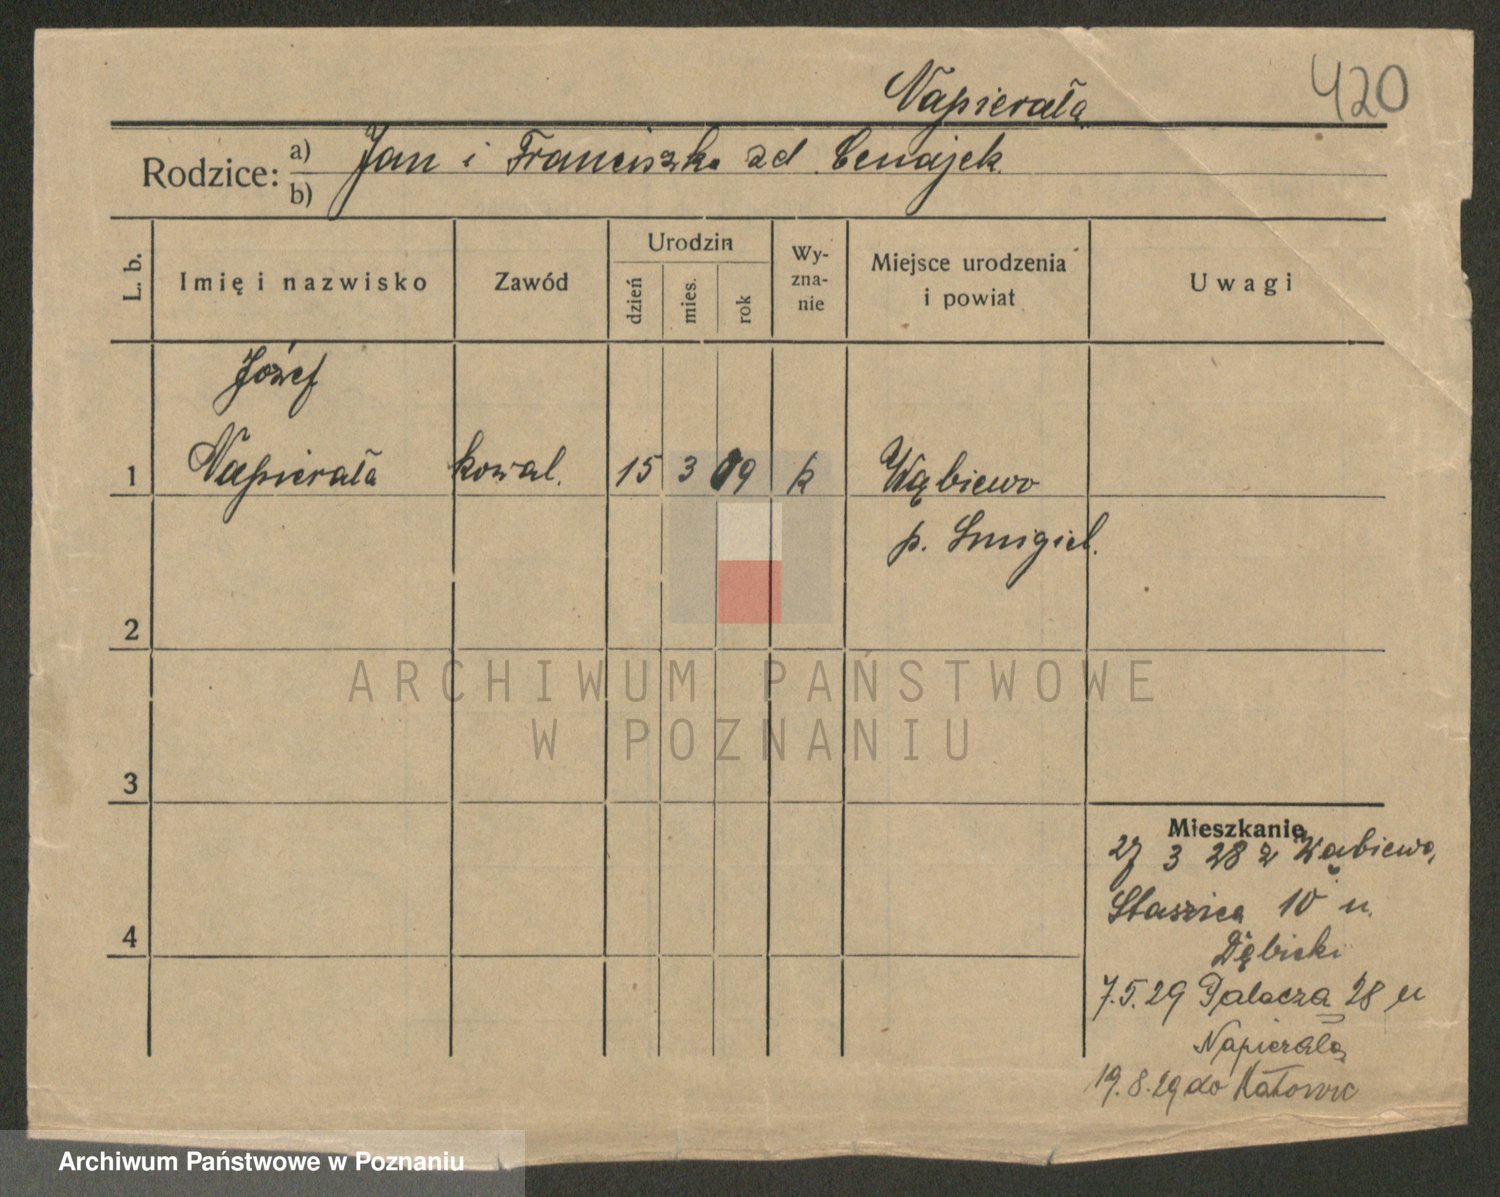 420
Napierała
Rodzice: a) Jan i Franciszka zd. Cenajek
b)
L. b.
Imię i nazwisko
Zawód
Urodzin
dzień
mies.
rok
Wy-
zna-
nie
Miejsce urodzenia
i powiat
Uwagi
Józef
1 Napierała kowal. 15 3 09 k Wąbiewo
p. Smigiel.
2
3
4
ARCHIWUM PAŃSTWOWE
W POZNANIU
Mieszkanie
27 3 28 z Wąbiewo,
Staszica 10 u.
Dębicki
7.5.29 Palacza 28 u
Napierała
19.8.29 do Katowic
Archiwum Państwowe w Poznaniu